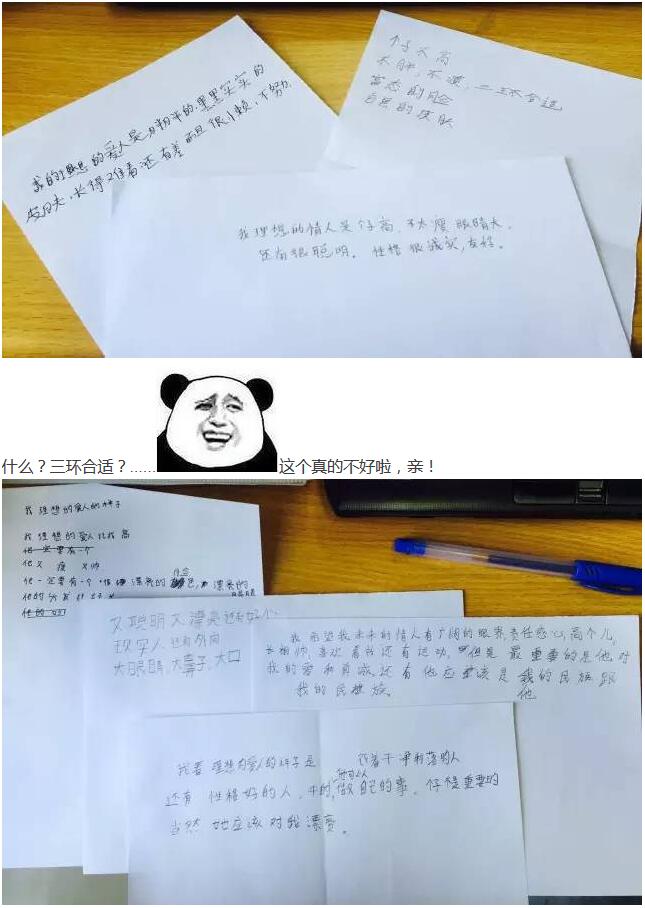 我的理想的爱人是
皮肤,长得又难看,还有差而且很懒,不努力
个子不高
不胖,不瘦,三环合适
的脸
自然的皮肤
我理想的情人是个子高,不太瘦,眼睛大,
还有很聪明。性格很诚实,友好。
什么?三环合适?...... 这个真的不好啦,亲!
我理想的爱人的样子
我理想的爱人比我高
他一定要有一个
他又瘦又帅
他一定要有一个 漂亮的 漂亮的
他的
又聪明又漂亮还有好心
现实人还有外向
大眼睛,大鼻子,大口
我希望我未来的情人有广阔的眼界,责任感心,高个儿,
长相帅,喜欢看书还有运动,但是最重要的是他对
我的爱和真诚。还有他应该是我的民族跟
我的民族 他
我看理想的爱人的样子是 活着干净利落的人
还有性格好的人, 做自己的事。 是重要的
当然她应该对我漂亮。